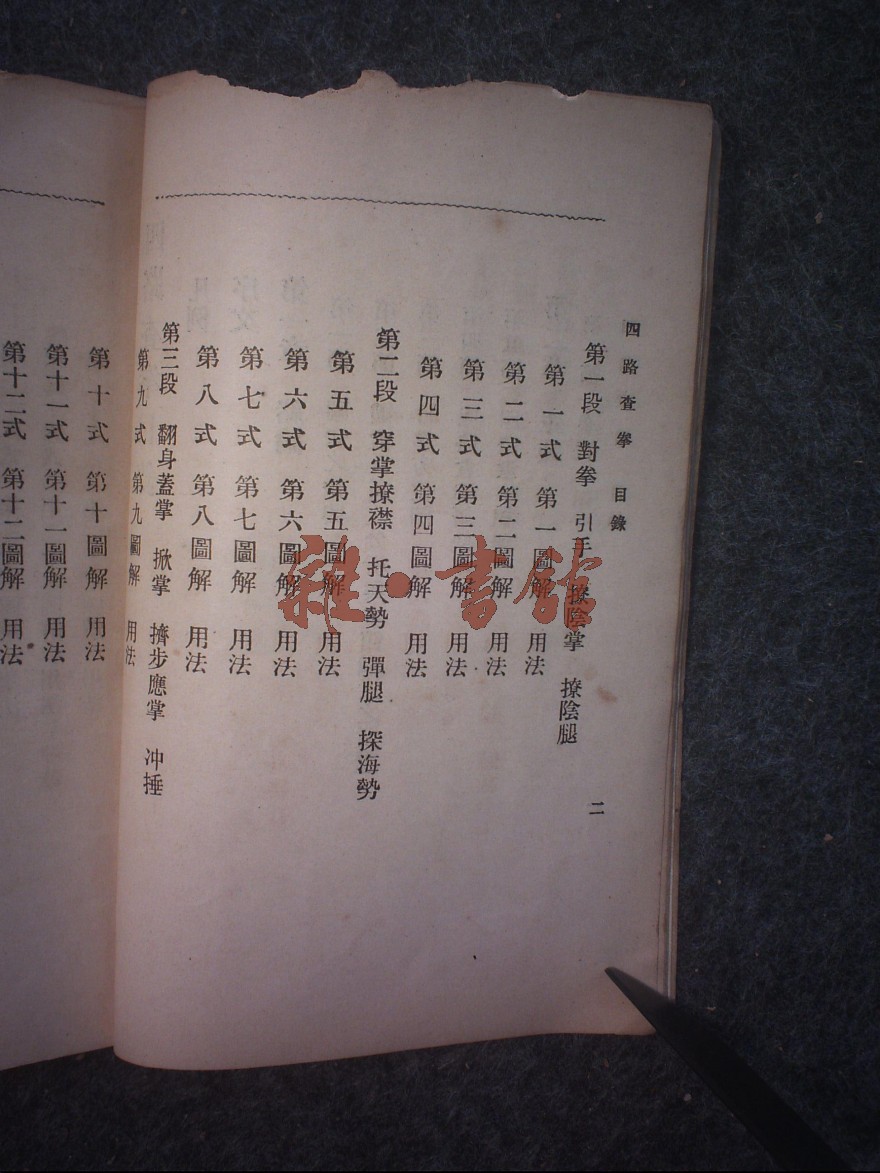 四路查拳 目錄
二
第一段 對拳 引手 撩陰掌 撩陰腿
第一式 第一圖解 用法
第二式 第二圖解 用法
第三式 第三圖解 用法
第四式 第四圖解 用法
第二段 穿掌撩襟 托天勢 彈腿 探海勢
第五式 第五圖解 用法
第六式 第六圖解 用法
第七式 第七圖解 用法
第八式 第八圖解 用法
第三段 翻身蓋掌 掀掌 擠步應掌 冲捶
第九式 第九圖解 用法
第十式 第十圖解 用法
第十一式 第十一圖解 用法
第十二式 第十二圖解 用法
雜·書館